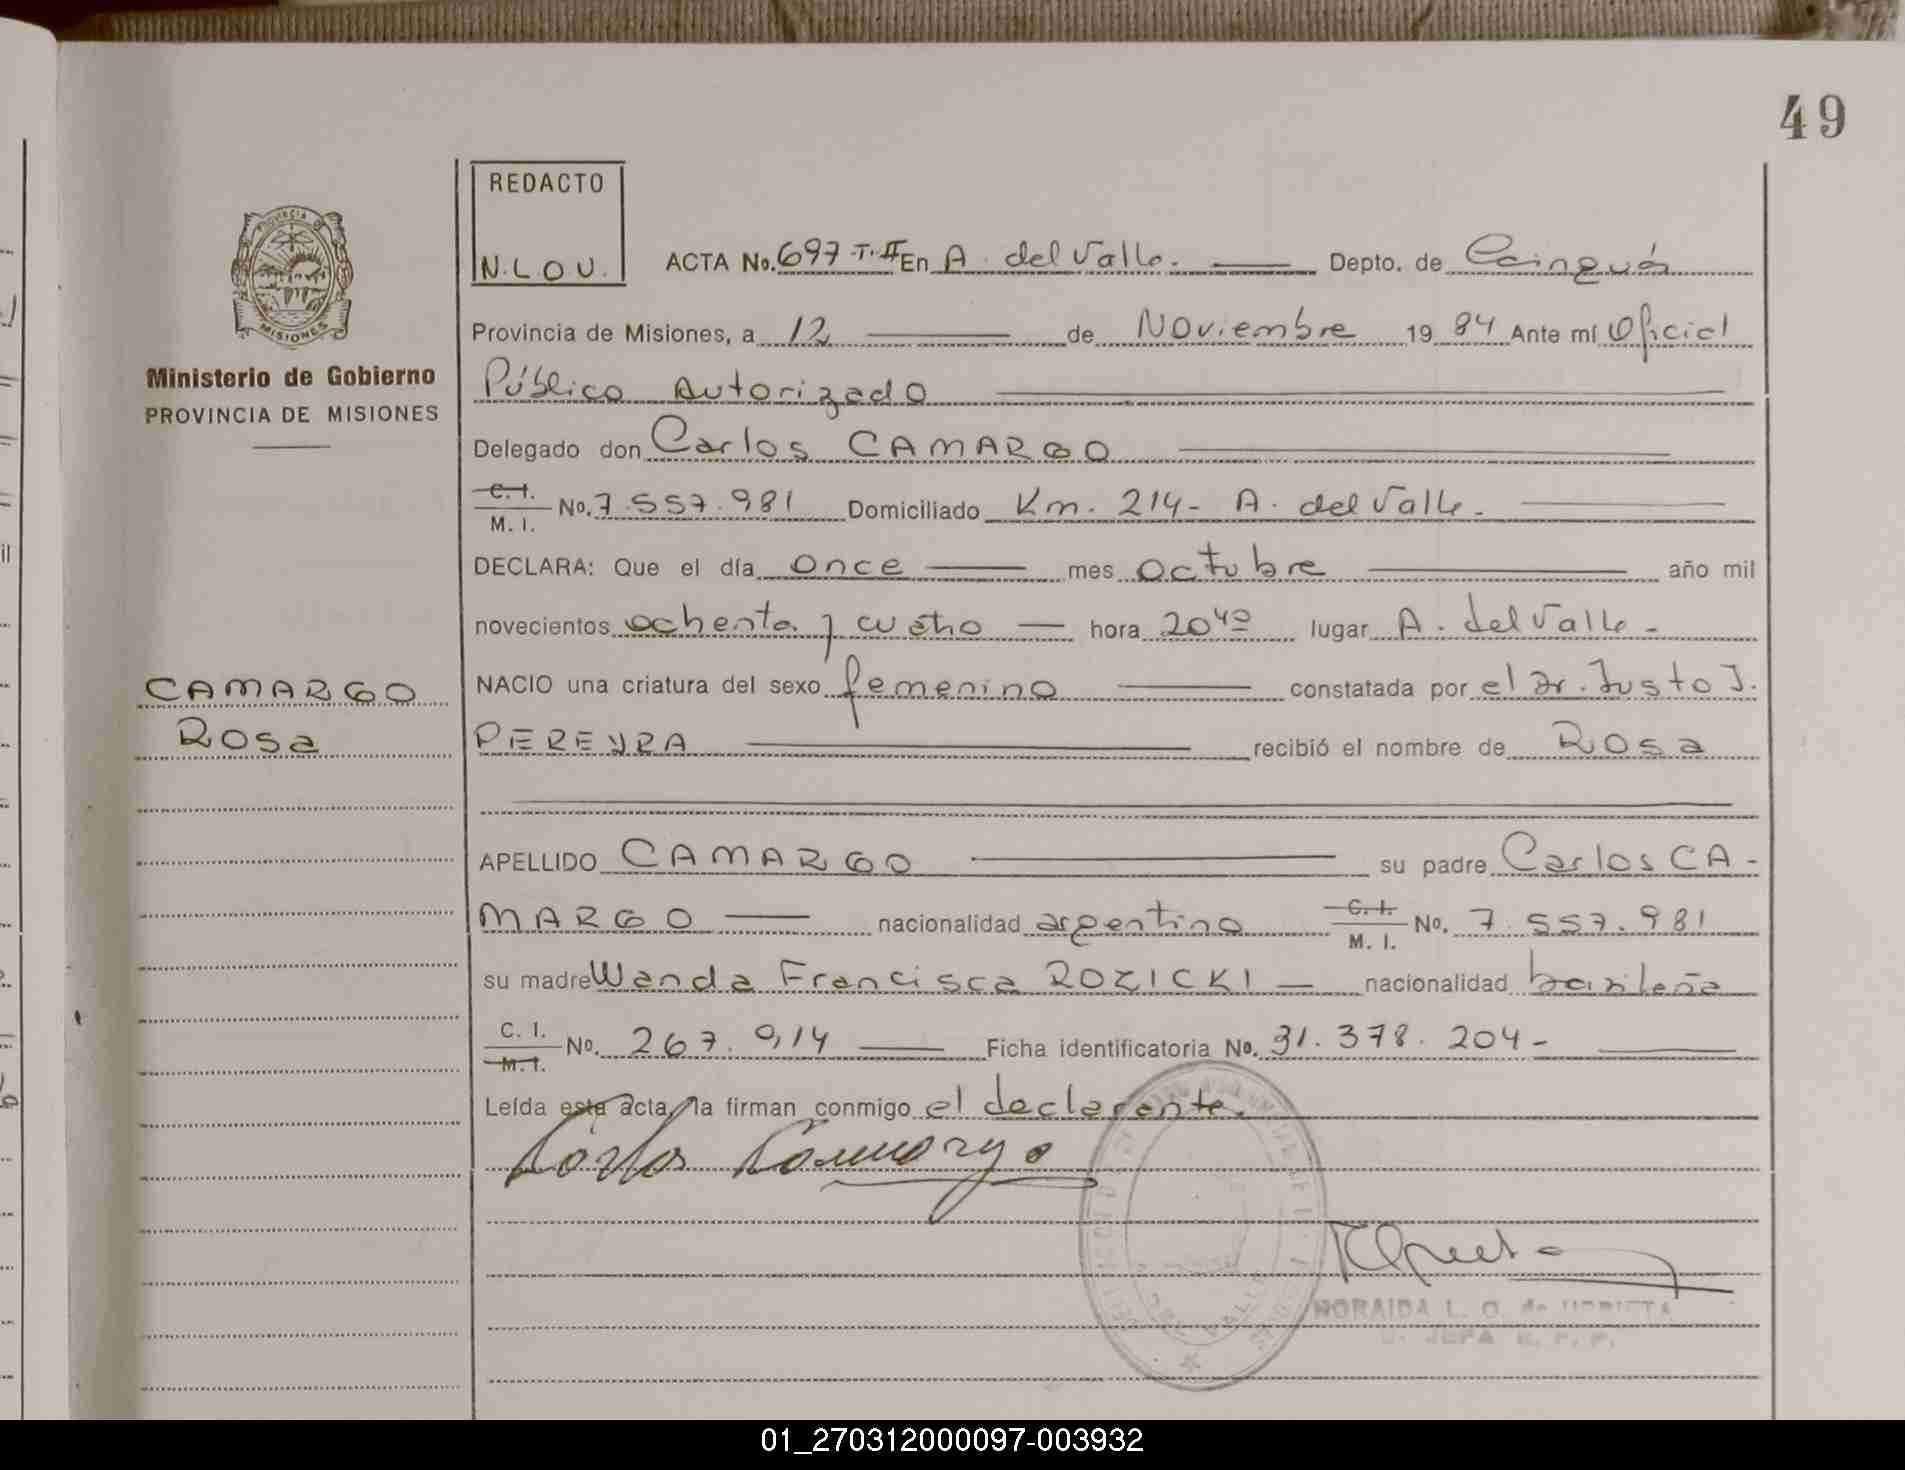 49
REDACTO
N.L.O.U.
ACTA No. 697-T.II En A. del Valle. Depto. de Cainguás
Provincia de Misiones, a 12 de Noviembre 1984 Ante mí Oficial
Público Autorizado
Delegado don Carlos CAMARGO
C.I. M.I. No. 7.557.981 Domiciliado Km. 214- A. del Valle.
DECLARA: Que el día once mes octubre año mil
novecientos ochenta y cuatro hora 20⁴⁰ lugar A. del Valle-
NACIO una criatura del sexo femenino constatada por el Dr. Justo J.
PEREYRA recibió el nombre de Rosa
APELLIDO CAMARGO su padre Carlos CA-
MARGO nacionalidad argentino C.I. M.I. No. 7.557.981
su madre Wanda Francisca ROZICKI nacionalidad brasileña
C.I. M.I. No. 267.914 Ficha identificatoria No. 31.378.204-
Leída esta acta, la firman conmigo el declarante.
Carlos Camargo
NORAIDA L. O. de URRIETA
PROVINCIA DE
MISIONES
Ministerio de Gobierno
PROVINCIA DE MISIONES
CAMARGO
Rosa
DEL VALLE
01_270312000097-003932